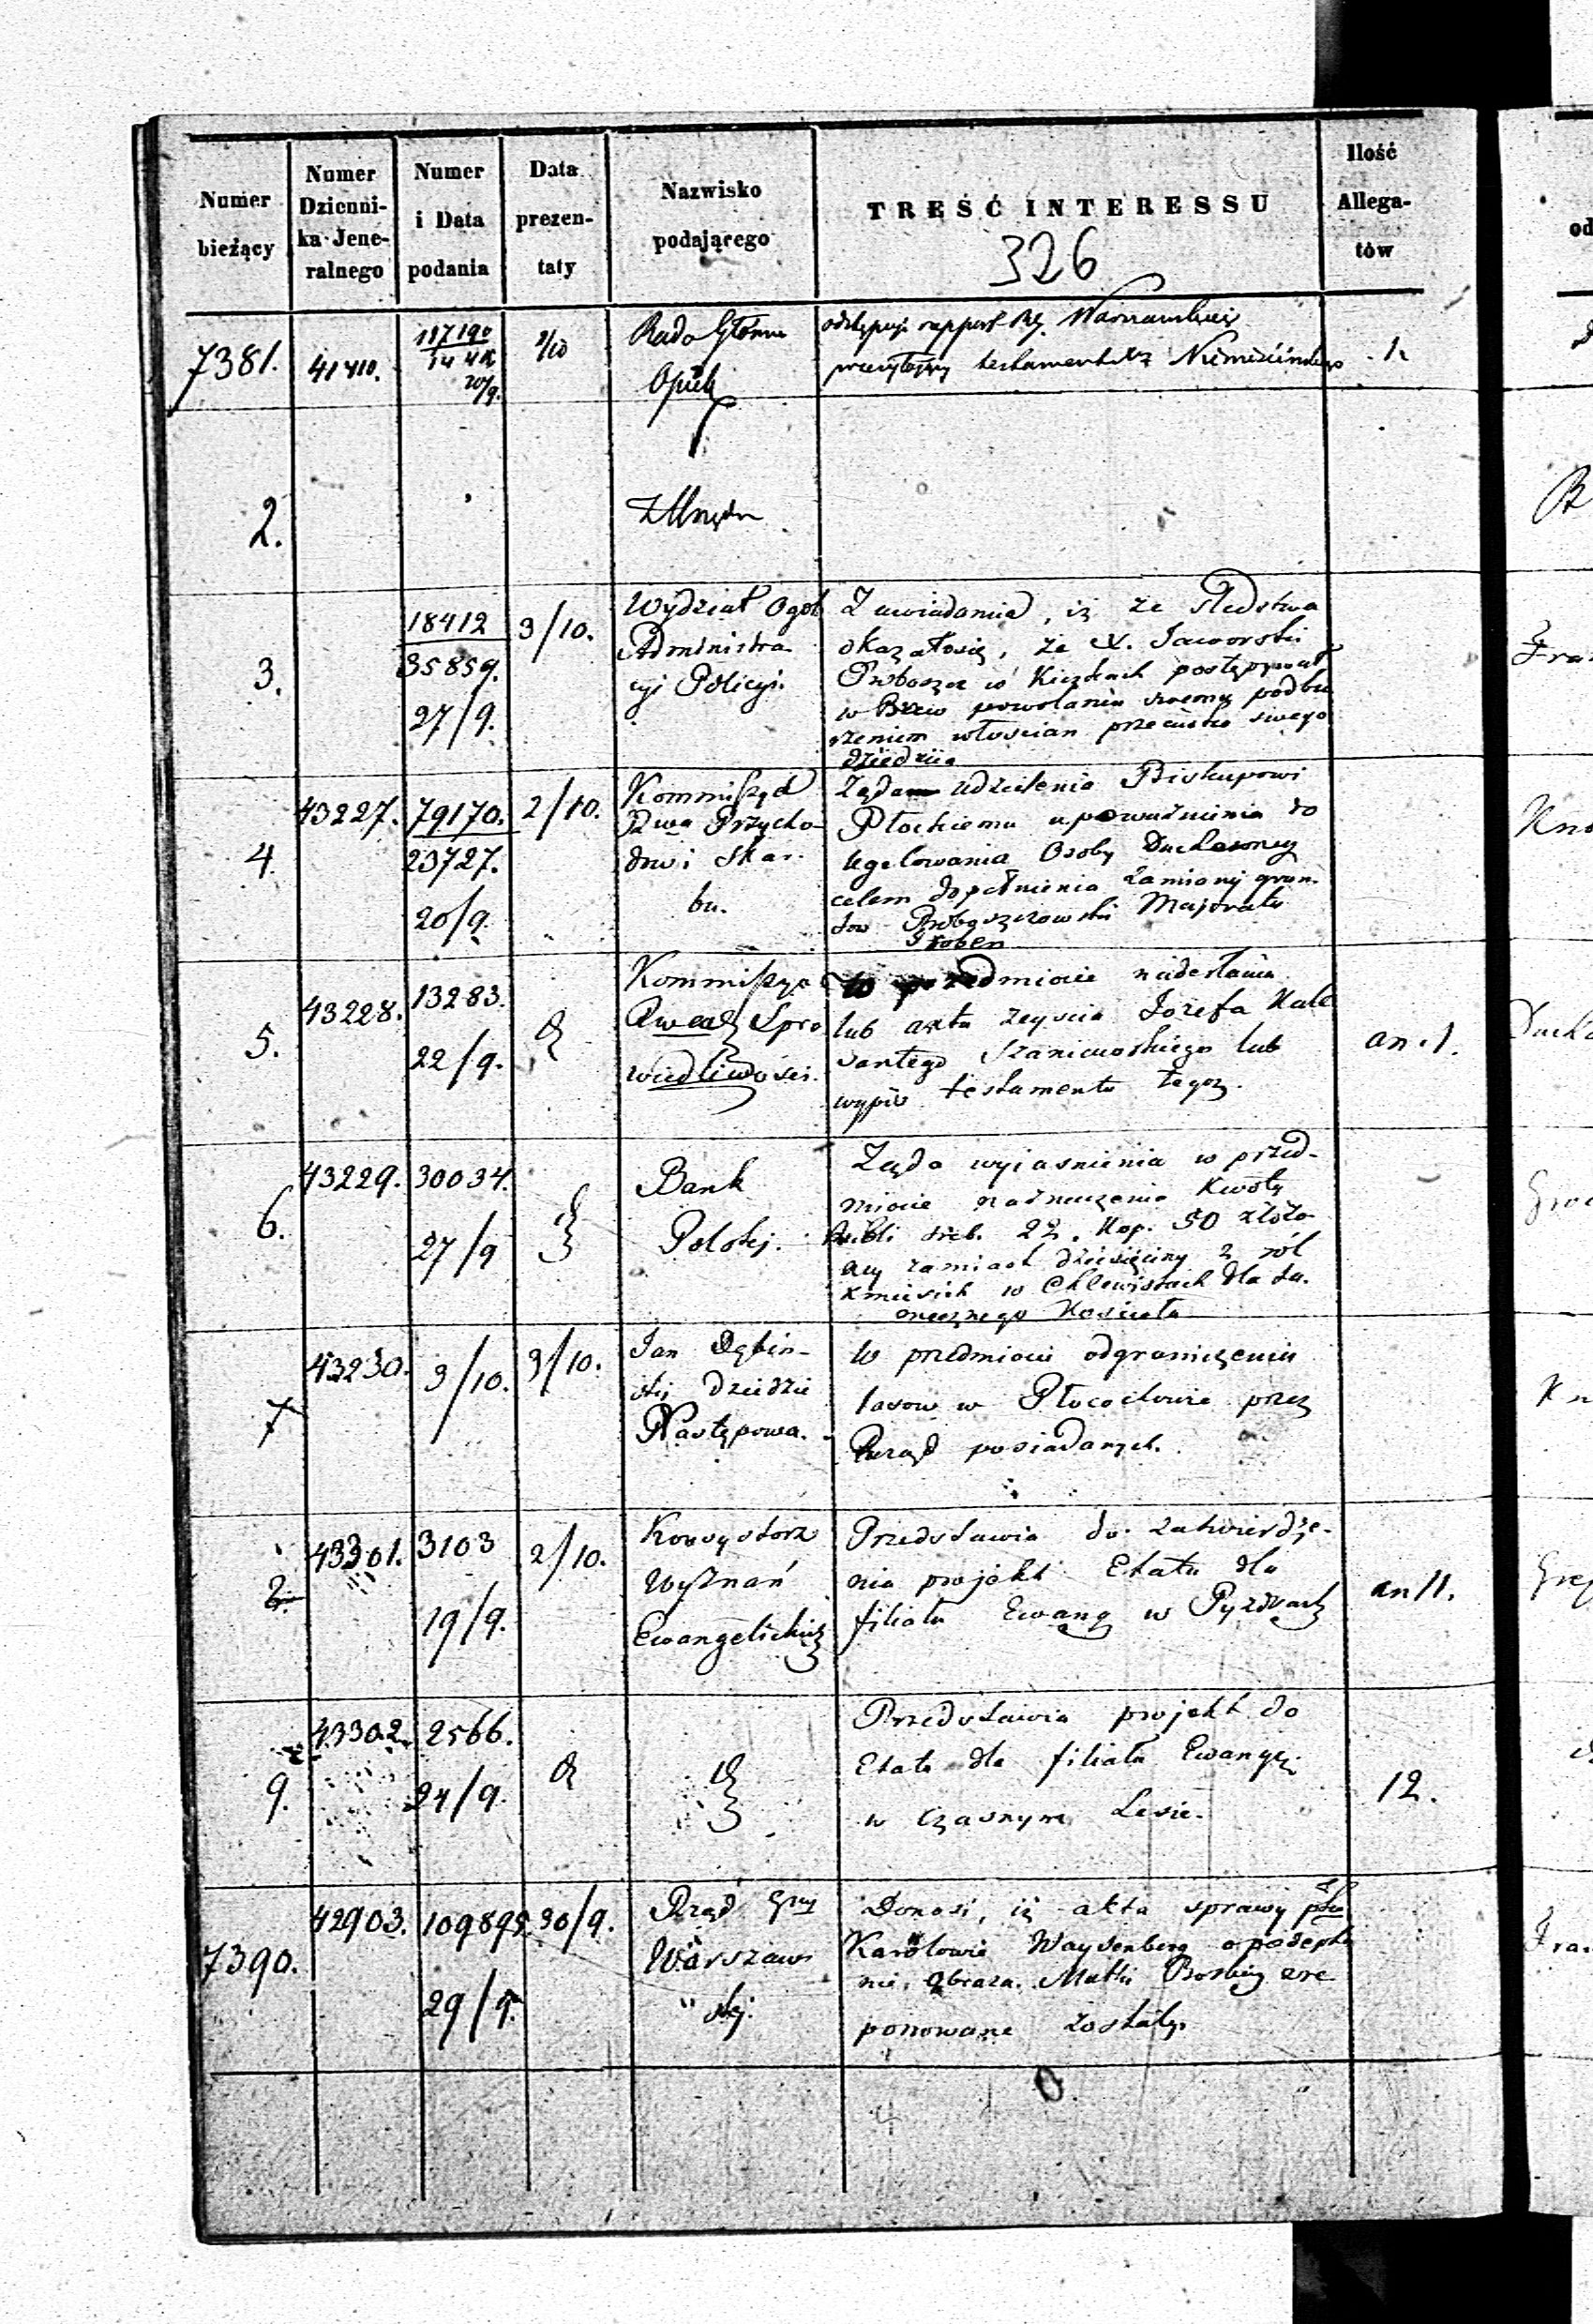 Numer bieżący
Numer Dzienni-ka Jene-ralnego
Numer i Data podania
Data prezen-taty
Nazwisko podającego
TREŚĆ INTERESSU
Ilość Allega-tów
326
7381. 41410. 117190 20/9. 2/10 Rada Główna
Opiek
odstępuje rapport
testamentu
2.
Z Urzędu
3. 18412
35859.
27/9.
3/10.
Wydział Ogól
Administra-
cyi Policyi.
Zawiadamia, iż ze śledztwa
okazało się, że X. Jaworski
Proboszcz w postępował
w Brew powołaniu swemu podbu
rzeniem włoscian przeciwko swego
dziedzica
4. 43227. 79170.
23727.
20/9.
2/10.
Kommissya
Rzwa Przycho-
dow i Skar-
bu.
Żąda udzielenia Biskupowi
Płockiemu upoważnienia do
Delegowania Osoby Duchownej
celem dopełnienia Zamiany grun-
tow Proboszczowski Majoratu
Skoben
5. 43228. 13283.
22/9.
Kommissya
Rwa Spra
wiedliwości.
w przedmiocie nadesłania
lub aktu zejscia Józefa Kala
santego Szaniawskiego lub
wypis testamentu tegoz.
an. 1.
6. 43229. 30034.
27/9
Bank
Polski.
Żąda wyjasnienia w przed-
miocie naznaczenia Kwoty
Rubli sreb. 22. Kop. 50 złożo-
ney zamiast dziesięciny z ról
kmiecich w Chlewiskach dla tu.
onecznego Koscioła
7 43230. 3/10. 3/10.
Jan Dębin-
ski dziedzic
Następowa.
w przedmiocie odgraniczenia
lasow w Płocochowie przez
Rząd posiadanych.
8. 43301. 3103
19/9.
2/10.
Konsystorz
Wyznań
Ewangelickich
Przedstawia do zatwierdze-
nia projekt Etatu dla
filiału Ewang w Pyzdrach
an 11.
9. 43302. 2566.
24/9.
Przedstawia projekt do
Etatu dla filiału Ewangi.
w Czarnym Lesie.
12.
7390. 42903. 109895. 30/9.
29/9.
Rząd Gny
Warszaw-
ski.
Donosi, iż akta sprawy pko
Karolowi Waysenberg o podepta
nie obraza Matki Boskiej are
ponowane zostały.